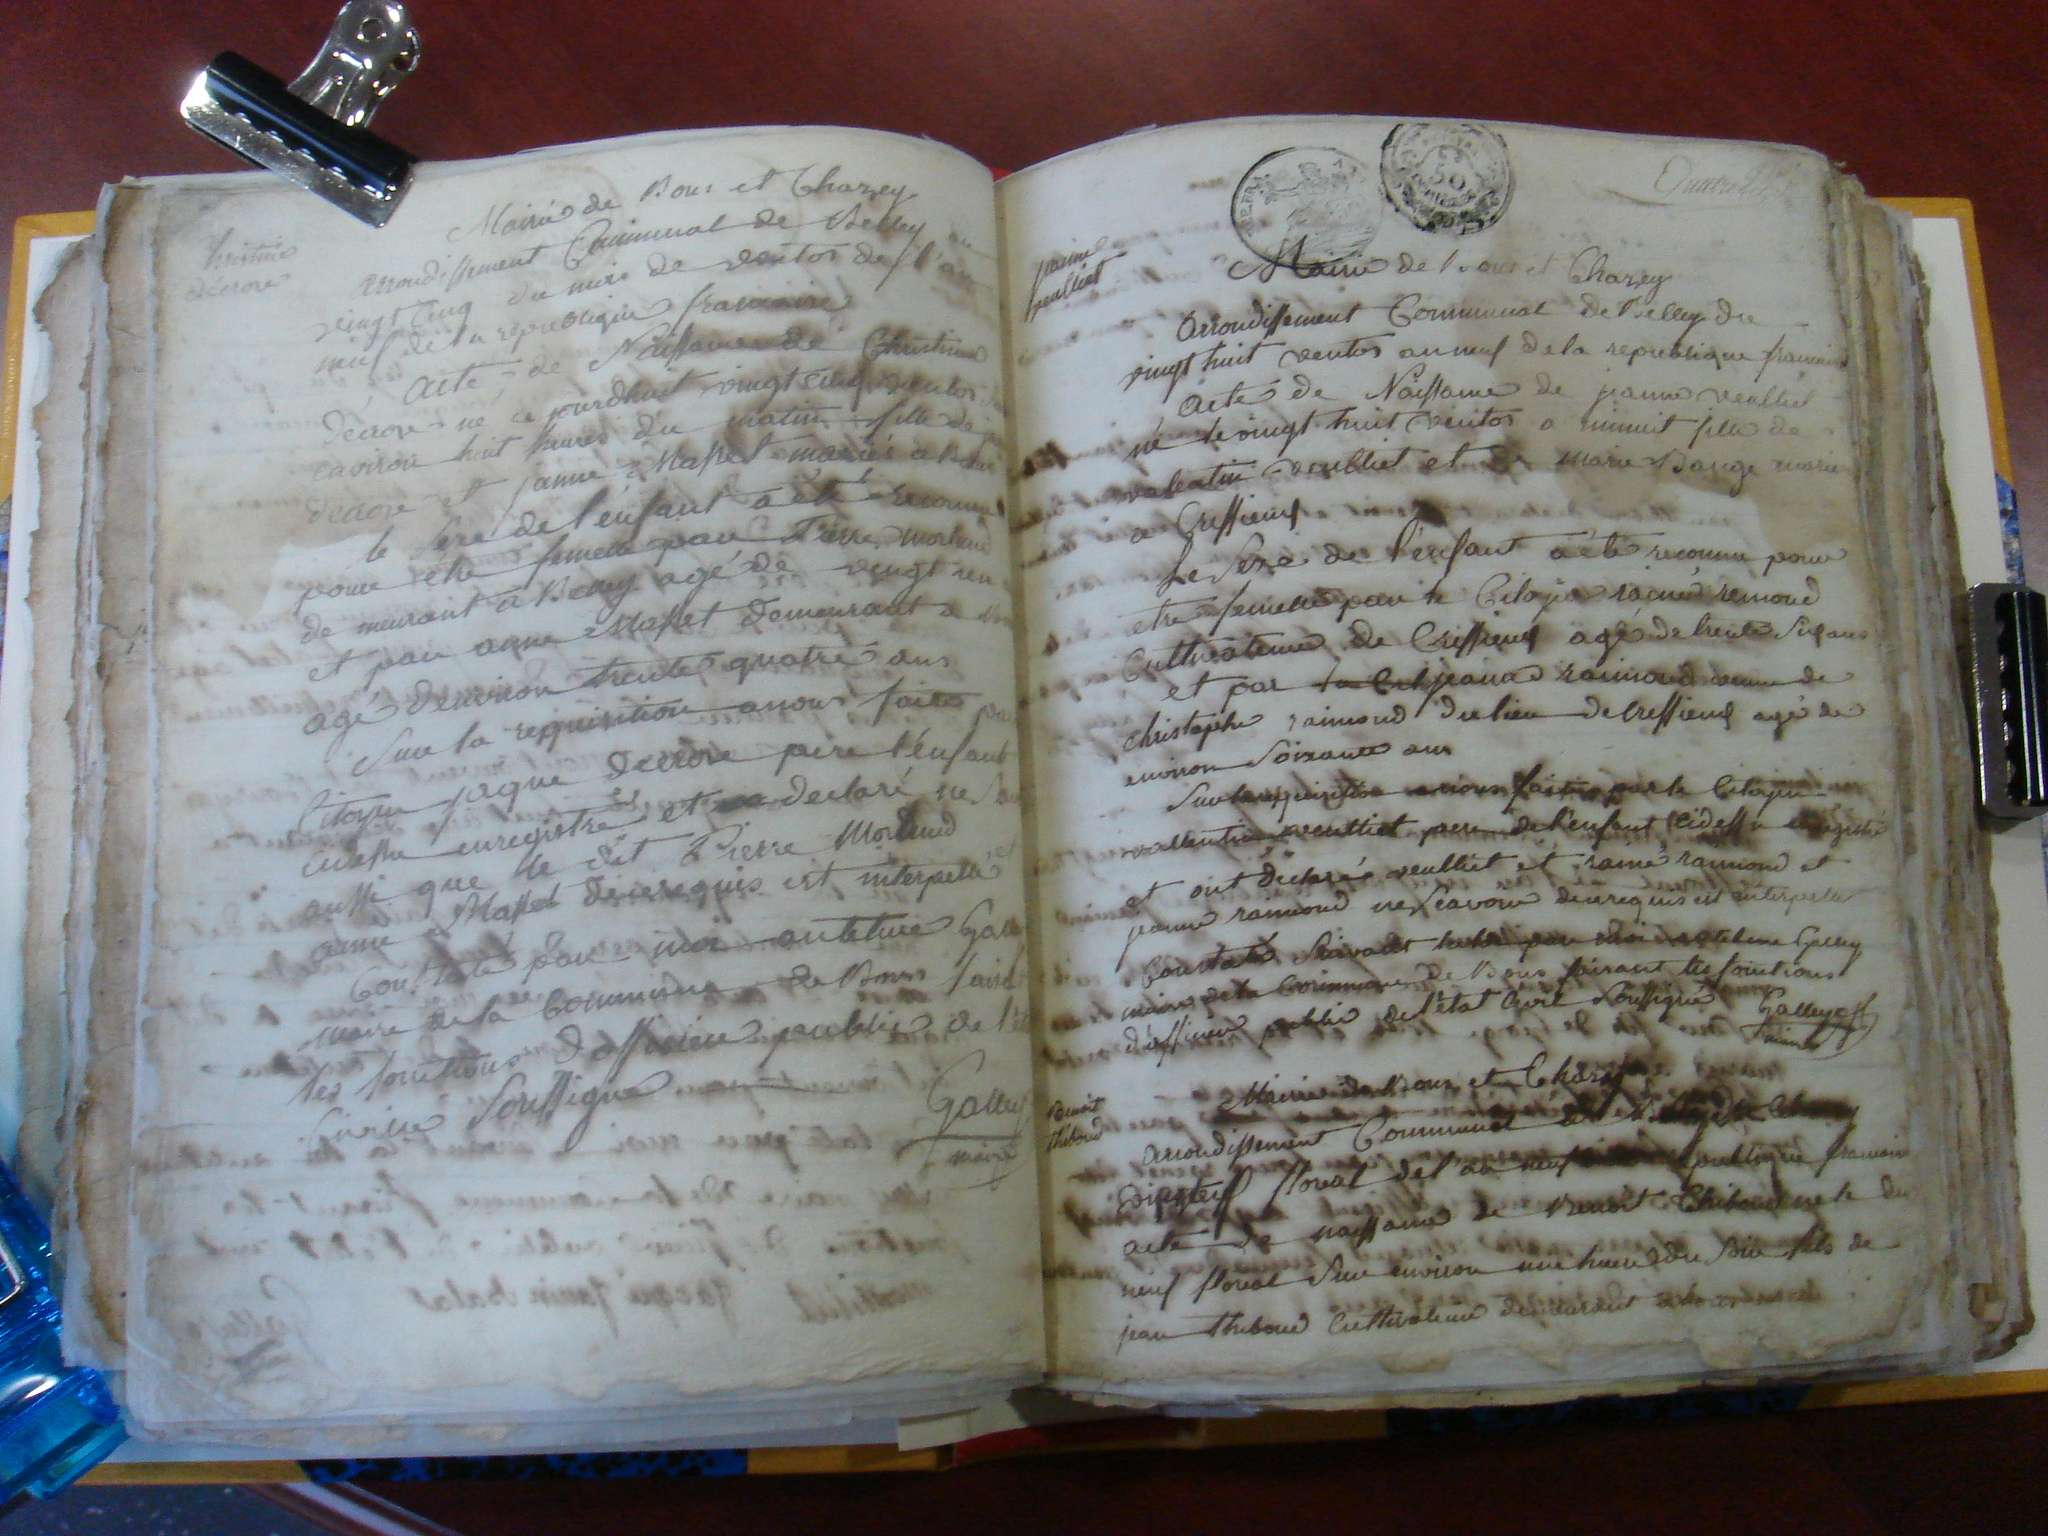 Mairie de Bons et Chazey
arrondissement Communal de Belley du
vingt cinq du mois de ventos de l'an
neuf de la republique francaise
Christine
decrose
acte de Naissance de Christine
decrose né ce jourdhuit vingt cinq ventos
environ huit heures du matin fille de
decrose et janne Masset mariés a Bons
le sexe de l'enfant a été reconnu
pour etre femelle par Pierre
de meurant a Bons agé de vingt
et par anne Masset demeurant a
agé denviron trente quatre ans
Sur la requisition a nous faite par
Citoyen jaque decrose pere l'enfant
cidessu enregistré et a declaré ne
aussi que le dit Pierre
anne Masset de ce requis est interpellé
Constaté par moi antelme Galley
maire de la Commune de Bons faisant
les fonctions d'officier public de l'état
Civil Soussigné
Galley
maire
50
janne
veulliet
Mairie de Bons et Chazey
Arrondissement Communal de Belley du
vingt huit ventos an neuf de la republique francaise
Acte de Naissance de janne veulliet
né le vingt huit ventos a minuit fille de
valentin veulliet et de marie Bauge marié
a Cressieux
Le Sexe de l'enfant a été reconnu pour
etre femelle par le Citoyen raimond
Cultivateur de Cressieux agé de trente six ans
et par la Cit janne raimond veuve de
christophe raimond du lieu de Cressieux agé de
environ soixante ans
Sur la requisition a nous faite par le Citoyen
vallentin veulliet pere de l'enfant cidessu enregistré
et ont declaré veulliet et raimond et
janne raimond ne scavoir de ce requis est interpellé
Constaté suivant la loi par moi antelme Galley
maire de la Commune de Bons faisant les fonctions
d'officier public de l'état Civil Soussigné Galley
maire
Benoit
thiboud
Mairie de Bons et Chazey
arrondissement Communal de Belley
floreal de l'an neuf republique francaise
acte de naissance de Benoit Thiboud né le dix
neuf floreal sur environ une heure du soir fils de
jean thiboud Cultivateur demeurant a bons